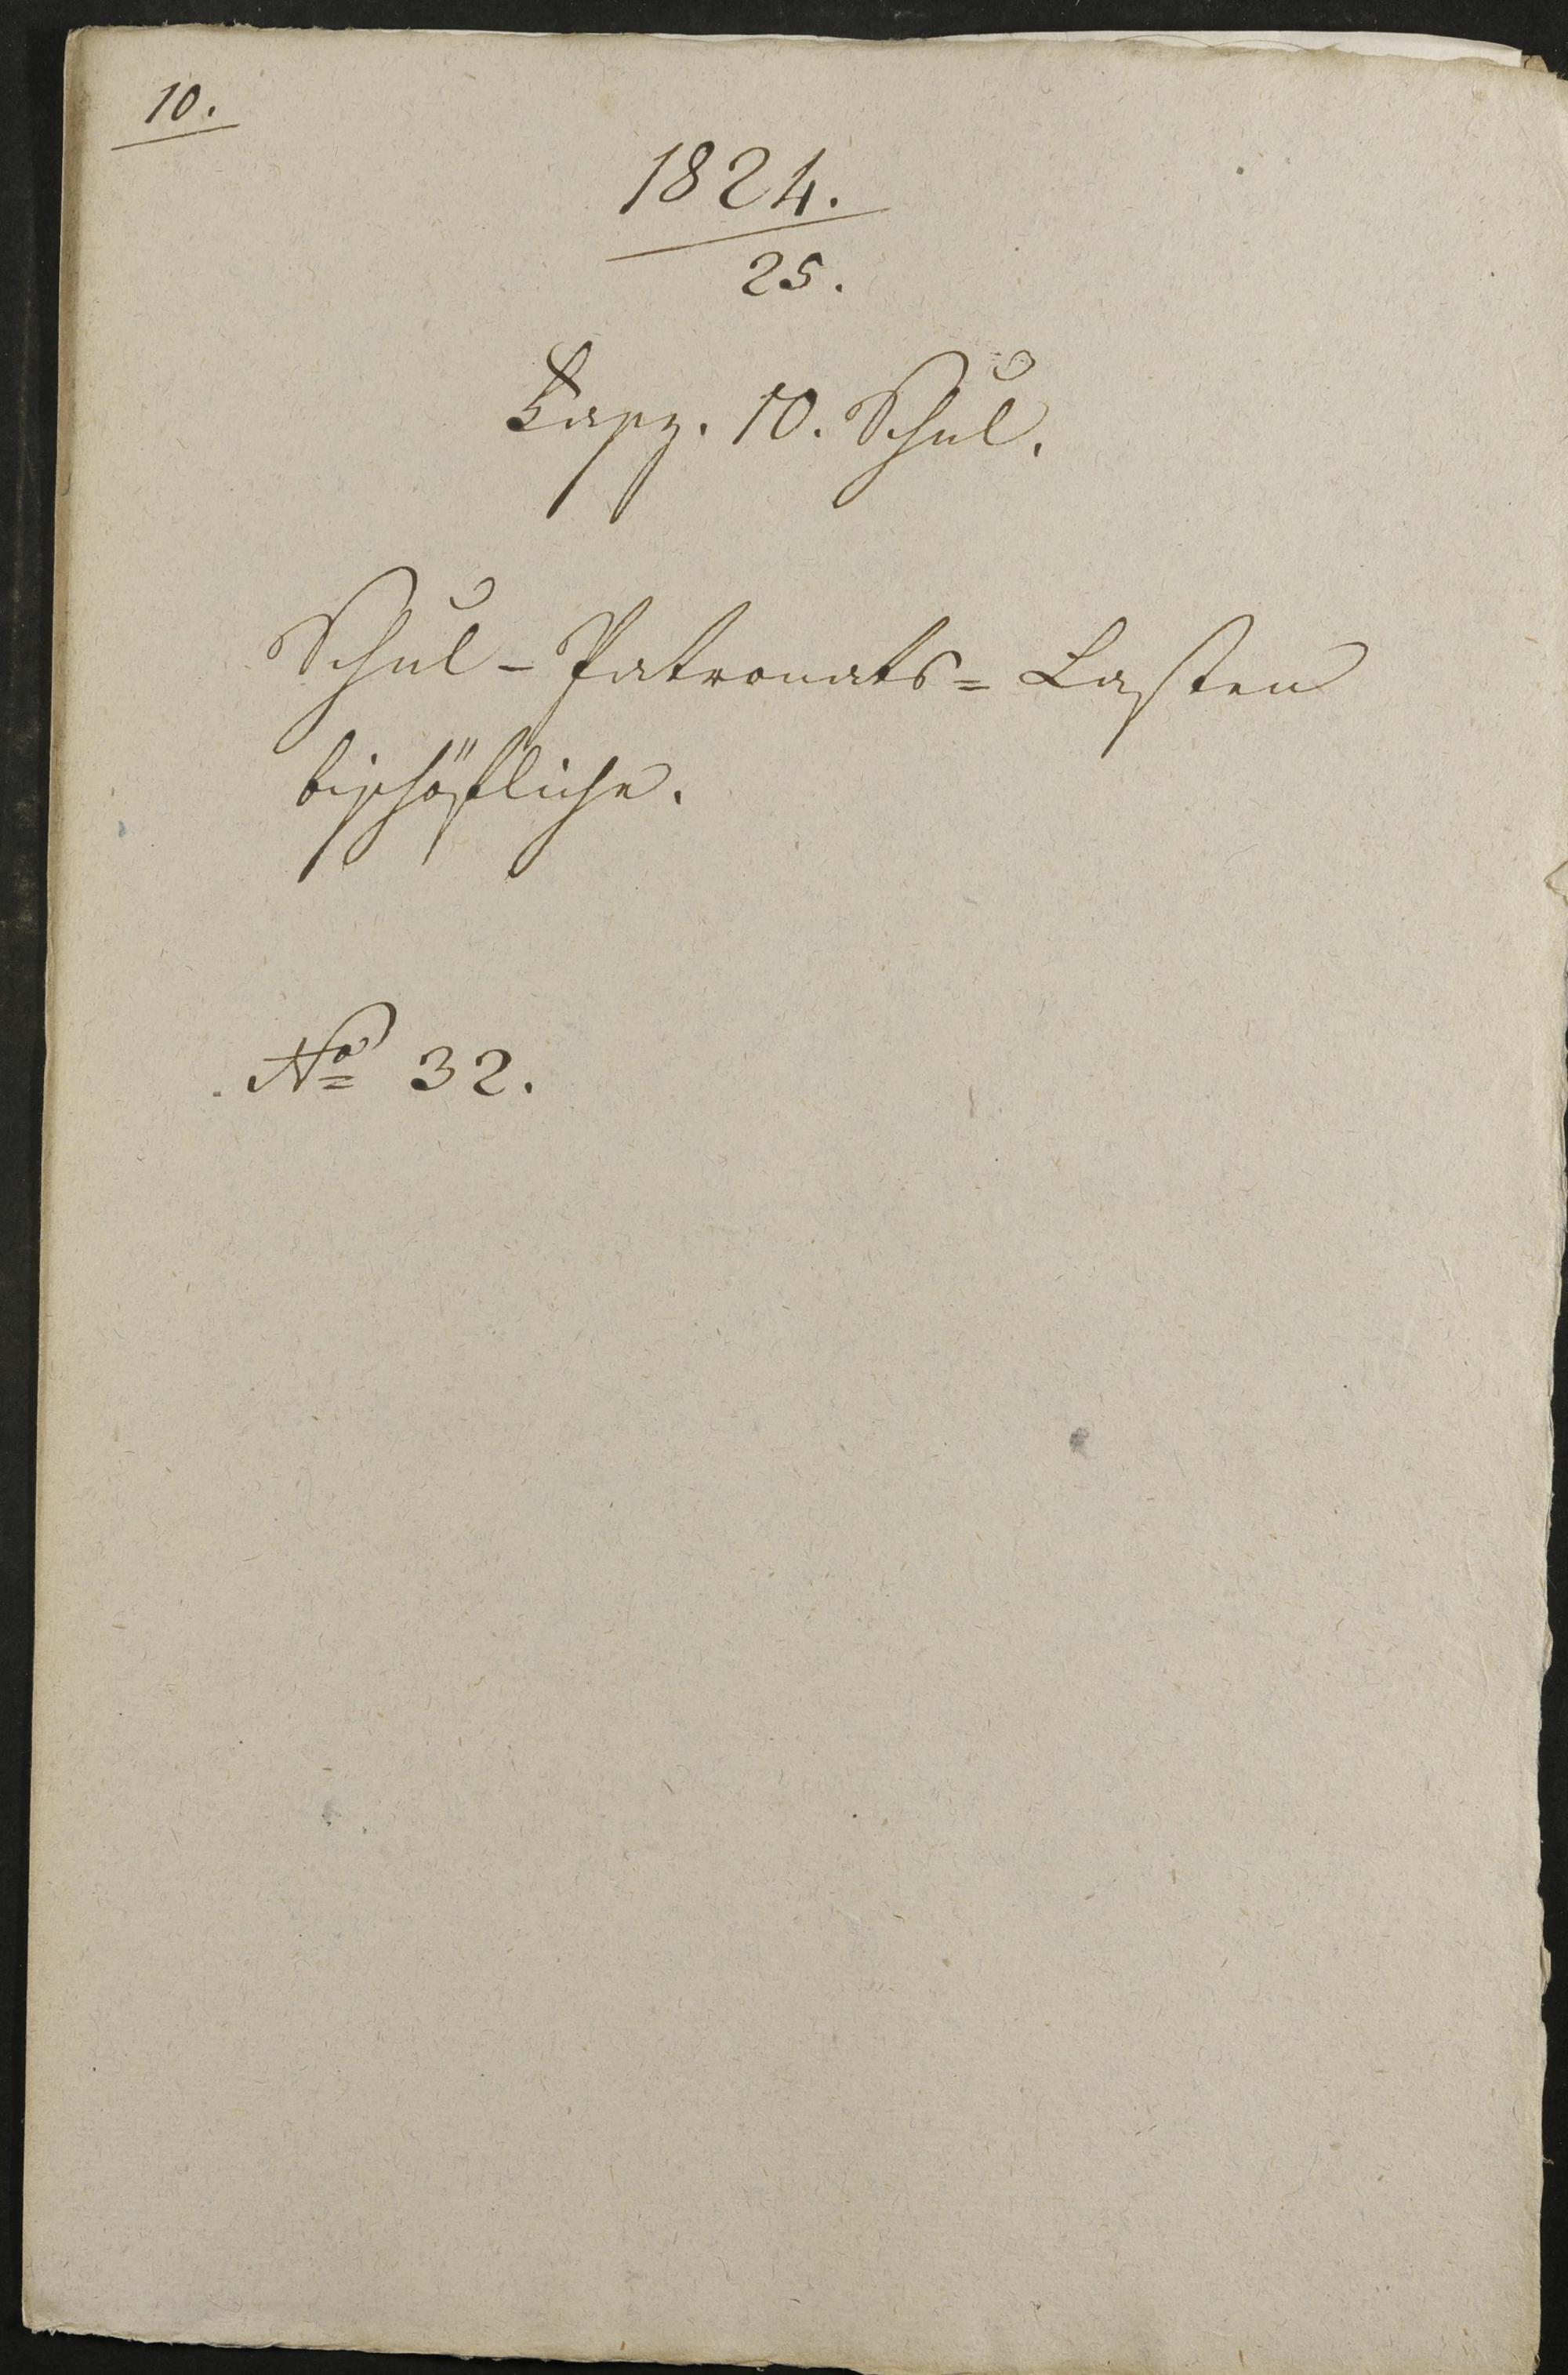 10.
1824.
25.
10. Schul.
Schul-Patronats-Lasten
bischöfliche.
No 32.